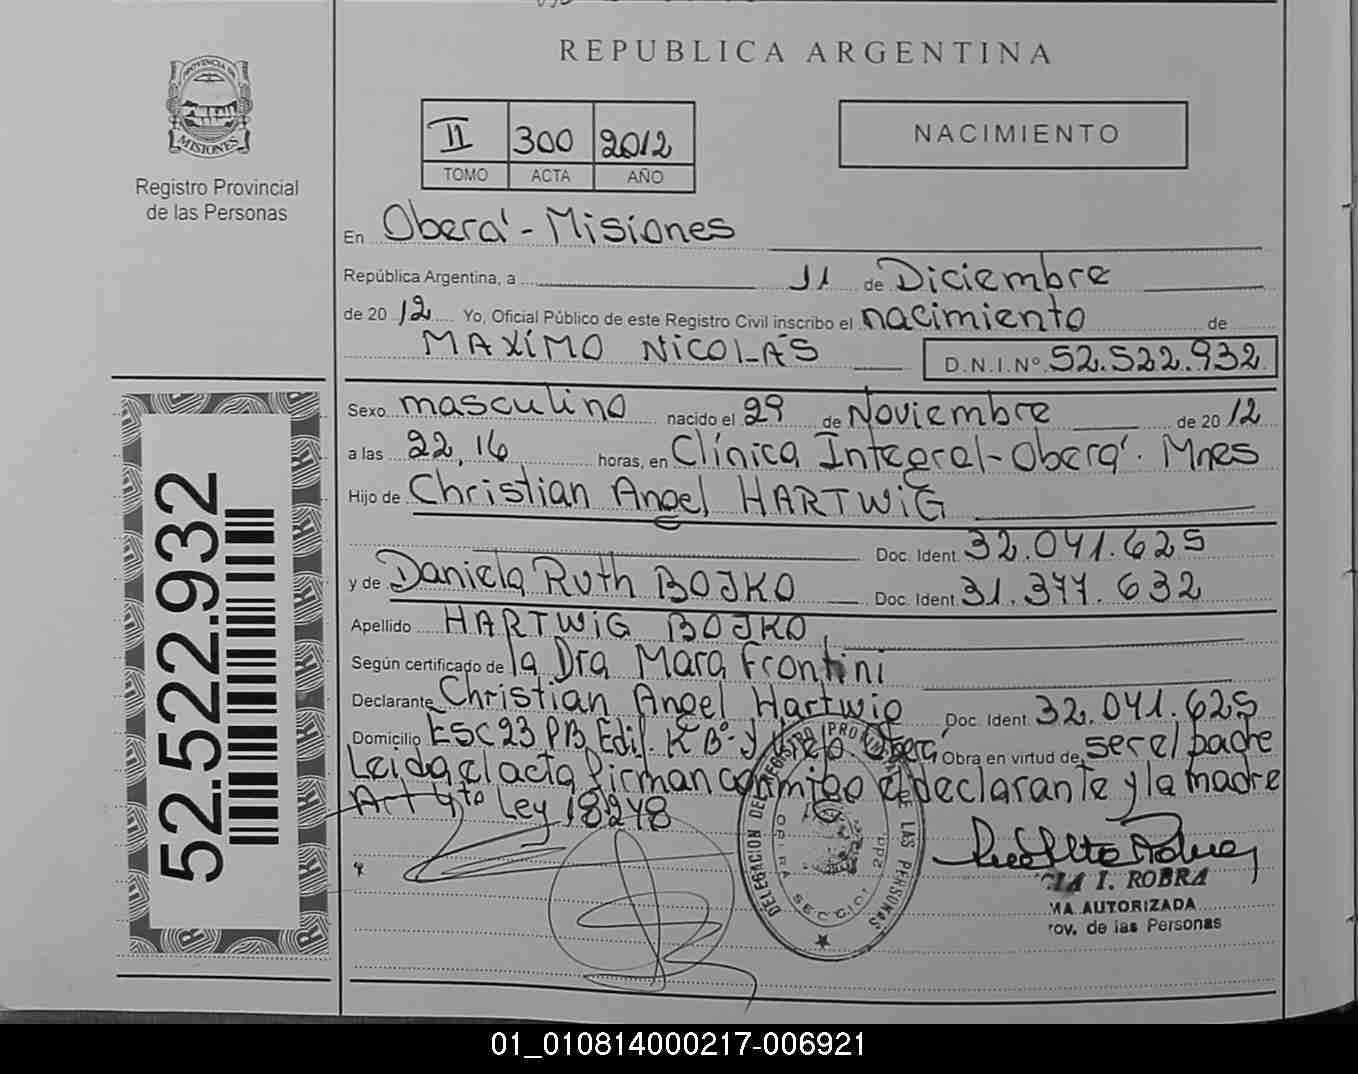 REPUBLICA ARGENTINA
PROVINCIA DE
MISIONES
Registro Provincial
de las Personas
II 300 2012
TOMO ACTA AÑO
NACIMIENTO
En Oberá - Misiones
República Argentina, a 11 de Diciembre
de 2012 Yo, Oficial Público de este Registro Civil inscribo el nacimiento de
MAXÍMO NICOLÁS D.N.I. Nº 52.522.932
Sexo masculino nacido el 29 de Noviembre de 2012
a las 22,16 horas, en Clínica Integral - Oberá. Mnes
Hijo de Christian Angel HARTWIG
Doc. Ident. 32.041.625
y de Daniela Ruth BOJKO Doc. Ident. 31.377.632
Apellido HARTWIG BOJKO
Según certificado de la Dra Mara Frontini
Declarante Christian Angel Hartwig Doc. Ident. 32.041.625
Domicilio Esc 23 PB Edif. K Bº Oberá Obra en virtud de ser el padre
Leida el acta firman conmigo el declarante y la madre
Art 4to Ley 18248
DELEGACION DEL REGISTRO PROVINCIAL DE LAS PERSONAS
OBERA SECCION 2da
CIA I. ROBRA
MA AUTORIZADA
rov. de las Personas
52.522.932
01_010814000217-006921